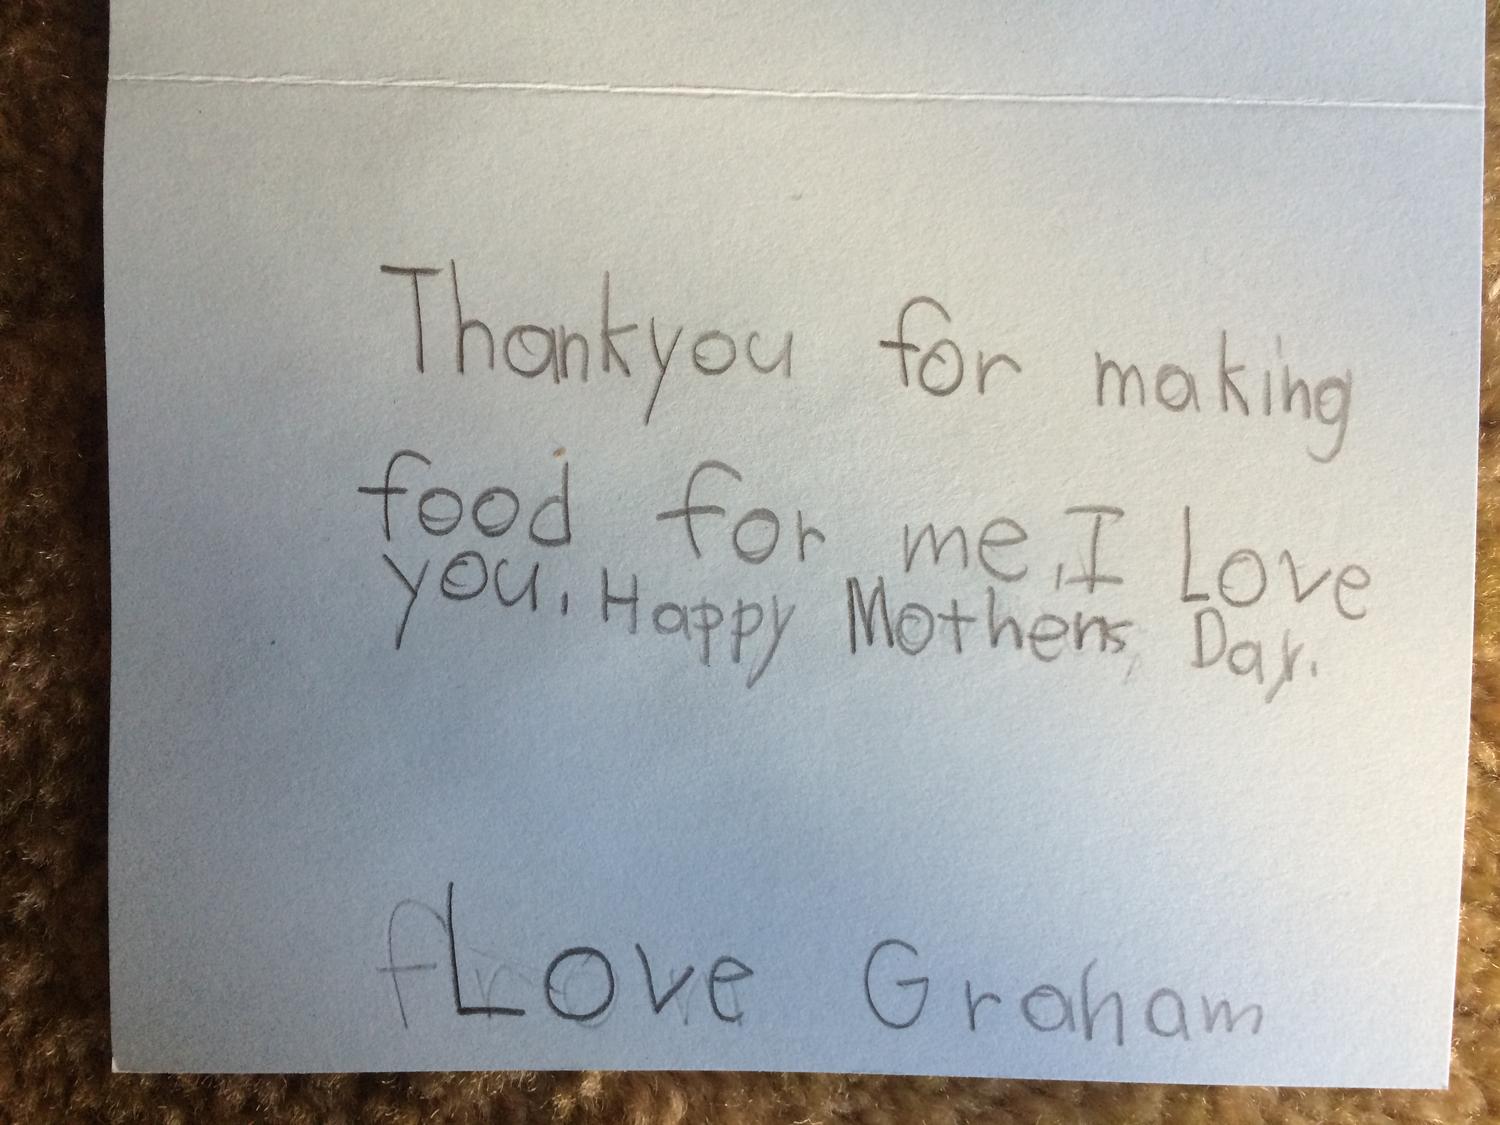 Thankyou for making
food for me, I Love
you. Happy Mothers Day.
Love Graham